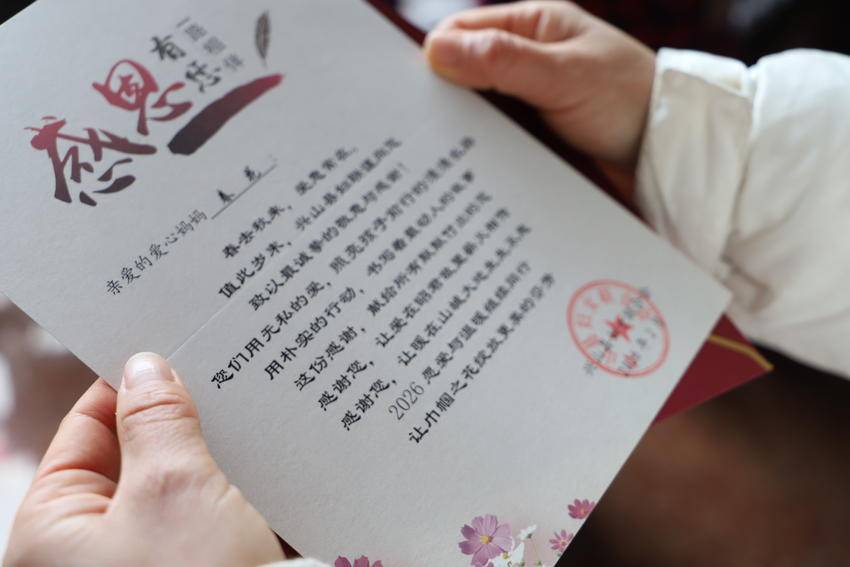 感恩有您
一路相伴
亲爱的爱心妈妈
春去秋来，爱意常在。
值此岁末，兴山县妇联谨向您
致以最诚挚的敬意与感谢！
您们用无私的爱，照亮孩子前行的漫漫长路
用朴实的行动，书写着最动人的故事
这份感谢，献给所有默默付出的您
感谢您，让爱在昭君故里薪火相传
感谢您，让暖在山城大地生生不息
2026 愿爱与温暖继续同行
让巾帼之花绽放更美的芬芳